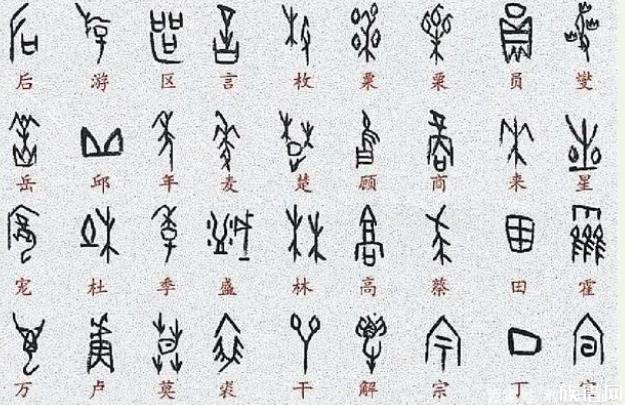 后 游 区 言 枚 粟 栗 员 燮
岳 邱 年 麦 楚 顾 商 来 星
宠 杜 季 盛 林 高 蔡 田 霍
万 卢 莫 裘 干 解 宗 丁